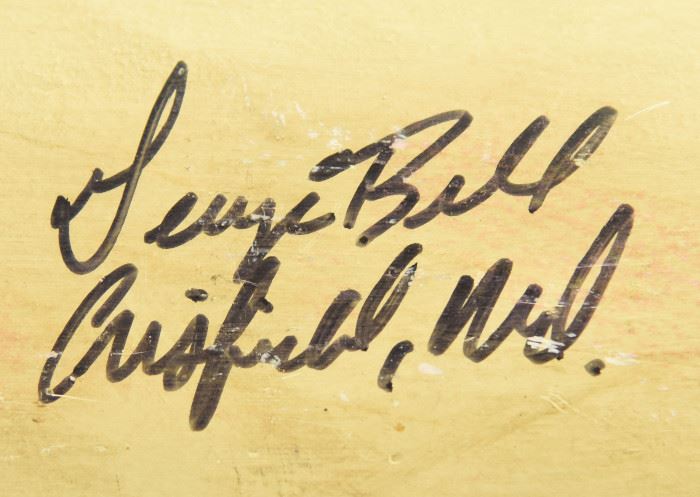 George Bell
Crisfield, Md.